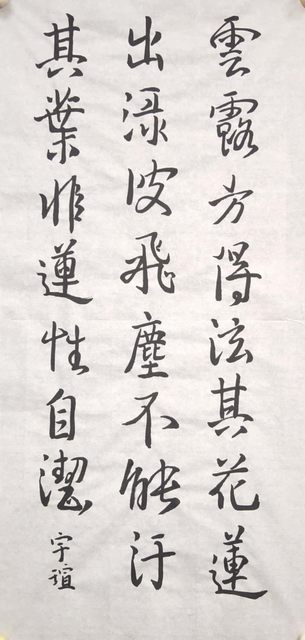 雲露方得泫其花蓮
出渌波飛塵不能汙
其葉非蓮性自潔
宇誼